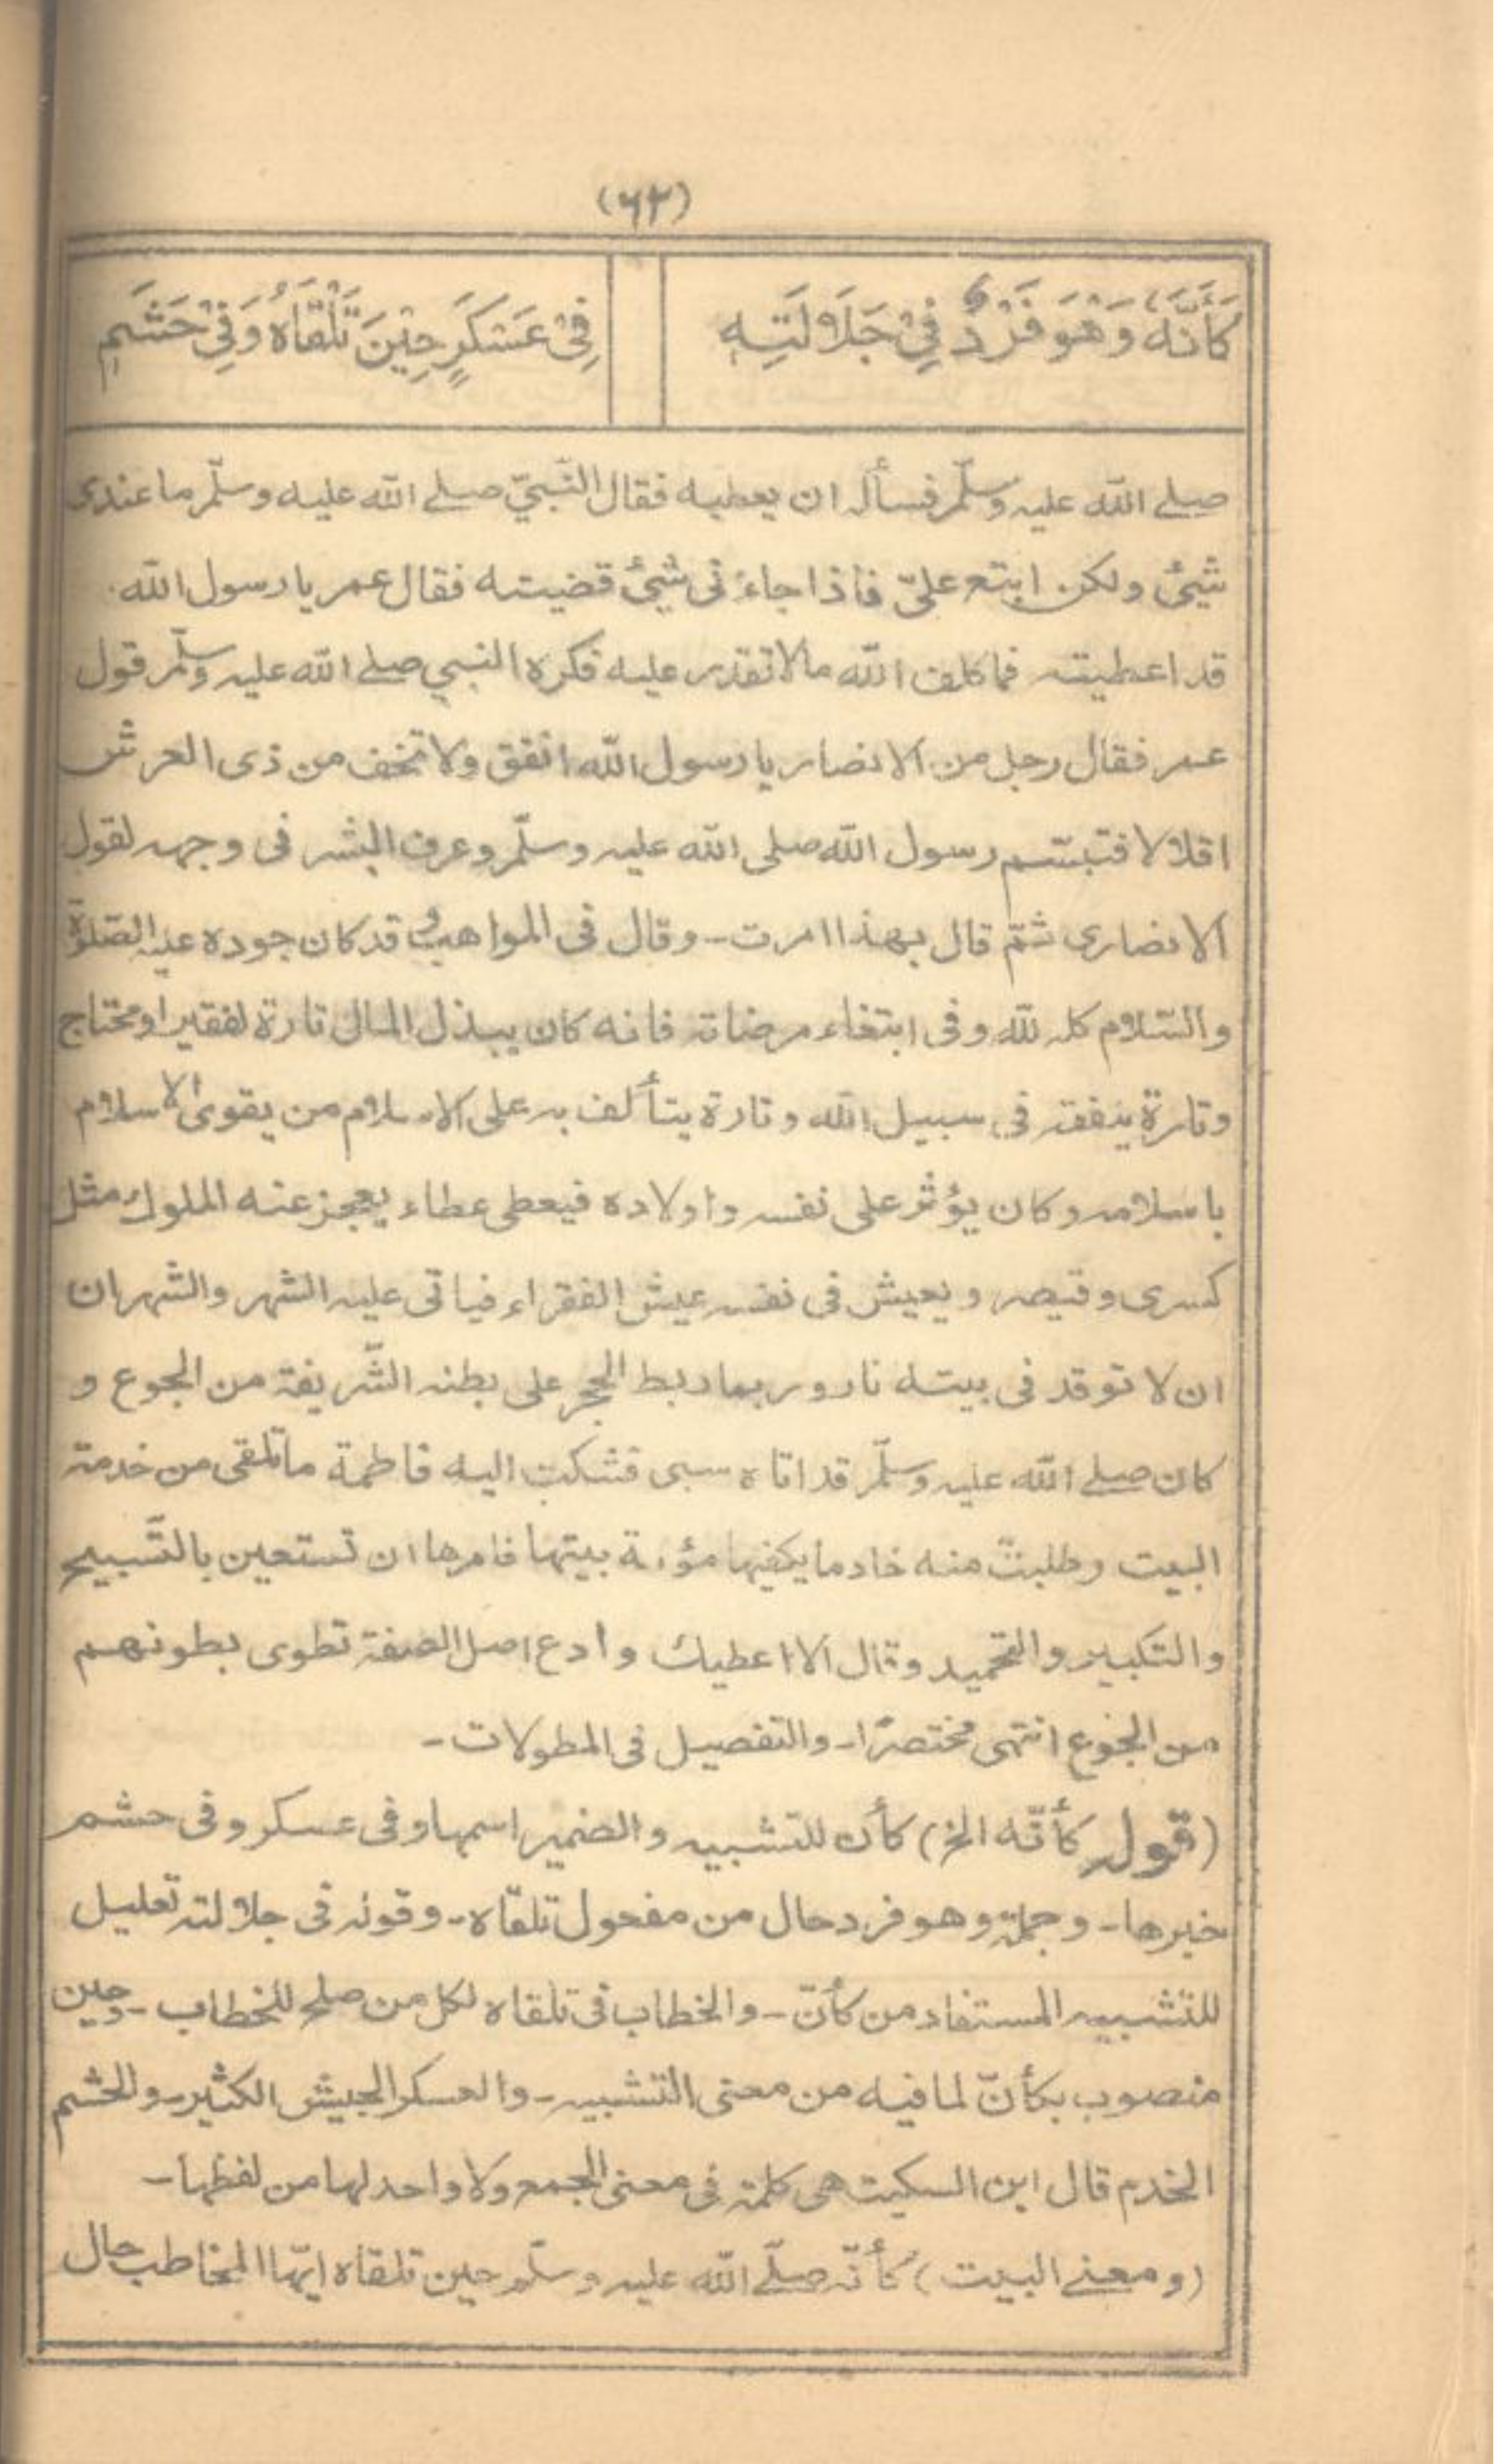 (٦٢)
كَأَنَّهٗ وَهْوَ فَرْدٌ فِيْ جَلَالَتِهٖ
فِيْ عَسْكَرٍ حِيْنَ تَلْقَاهُ وَفِيْ حَشَمٖ
صلے الله عليه وسلّم فسأله ان يعطيه فقال النّبيّ صلے الله عليه وسلّم ما عندى
شيئ ولكن ابتع علىّ فاذا جاءنى شيئ قضيته فقال عمر يا رسول الله
قد اعطيته فما كلف الله مالا تقدر عليه فكره النبي صلے الله عليه وسلّم قول
عمر فقال رجل من الانصار يا رسول الله انفق ولا تخف من ذى العرش
اقلالا فتبسّم رسول الله صلى الله عليه وسلّم وعرف البشر فى وجهه لقول
الانصارى ثمّ قال بهذا امرت - وقال فى المواهب وقد كان جوده عليه الصّلوة
والسّلام كله لله وفى ابتغاء مرضاته فانه كان يبذل المال تارة لفقير او محتاج
وتارة ينفقه فى سبيل الله وتارة يتألف به على الاسلام من يقوى الاسلام
باسلامه وكان يؤثر على نفسه واولاده فيعطى عطاء يعجز عنه الملوك مثل
كسرى وقيصر ويعيش فى نفسه عيش الفقراء فياتى عليه الشهر والشهران
ان لا توقد فى بيته نار وربما ربط الحجر على بطنه الشّريفة من الجوع و
كان صلے الله عليه وسلّم قد اتاه سبى فشكت اليه فاطمة ما تلقى من خدمة
البيت وطلبت منه خادما يكفيها مؤنة بيتها فامرها ان تستعين بالتّسبيح
والتكبير والتحميد وقال لا اعطيك وادع اهل الصفة تطوى بطونهم
من الجوع انتهى مختصرًا - والتفصيل فى المطولات -
(قوله كأنّه الخ) كأن للتشبيه والضمير اسمها وفى عسكر وفى حشم
خبرها - وجملة وهو فرد حال من مفعول تلقاه - وقوله فى جلالته تعليل
للتشبيه المستفاد من كأنّ - والخطاب فى تلقاه لكل من صلح للخطاب - وحين
منصوب بكأنّ لما فيه من معنى التشبيه - والعسكر الجيش الكثير - والحشم
الخدم قال ابن السكيت هى كلمة فى معنى الجمع ولا واحد لها من لفظها -
(ومعنے البيت) كأنّه صلّے الله عليه وسلّم حين تلقاه ايّها المخاطب حال